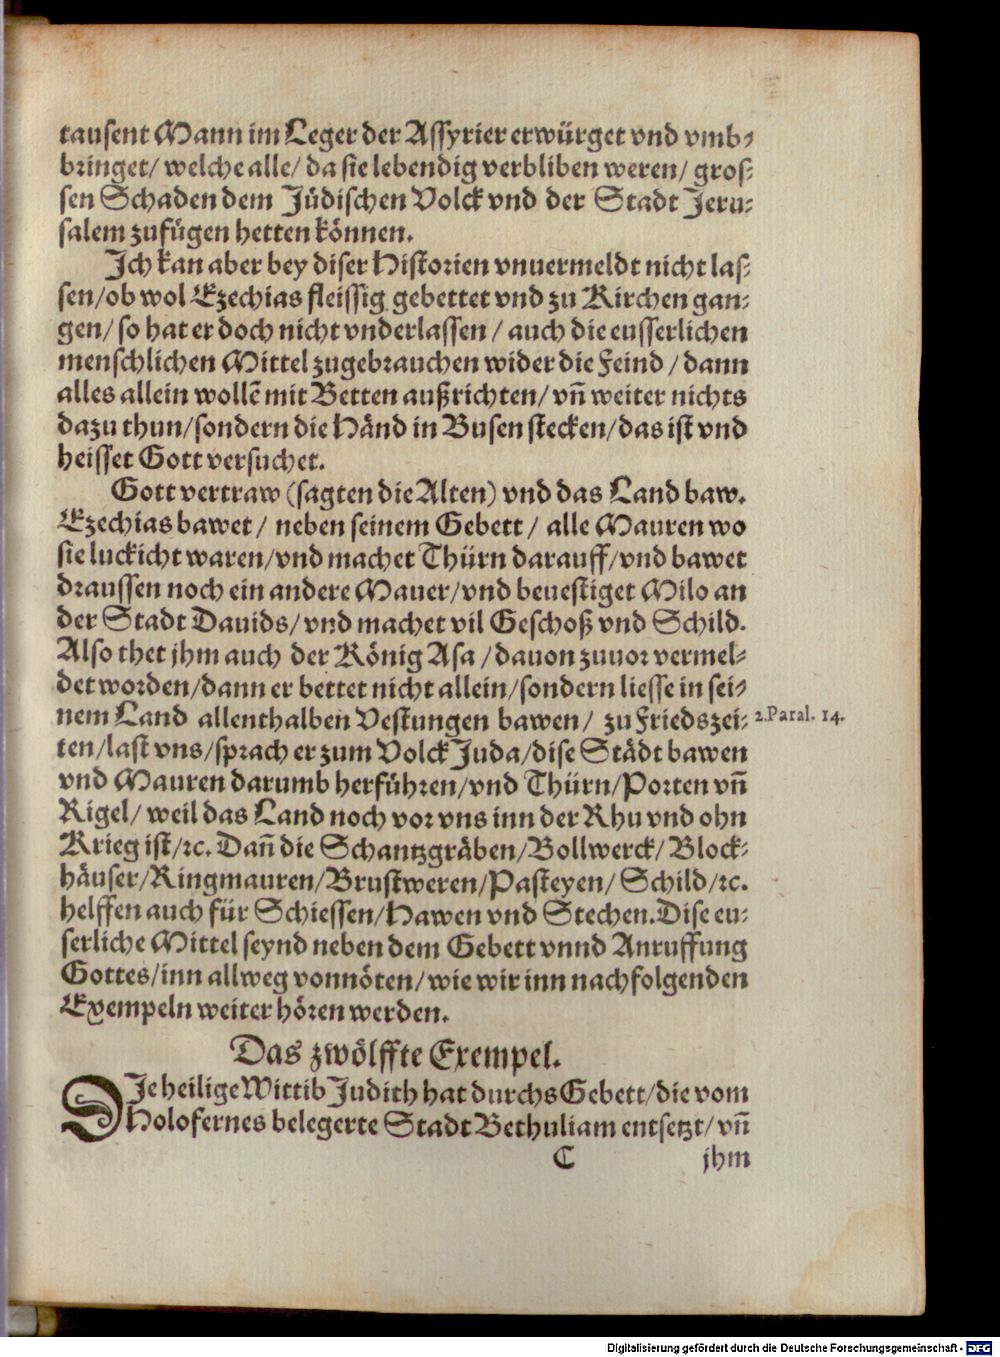 tausent Mann im Leger der Assyrier erwürget vnd vmb⸗
bringet/ welche alle/ da sie lebendig verbliben weren/ gros⸗
sen Schaden dem Jüdischen Volck vnd der Stadt Jeru⸗
salem zufügen hetten können.
Jch kan aber bey diser Historien vnuermeldt nicht las⸗
sen/ob wol Ezechias fleissig gebettet vnd zu Kirchen gan⸗
gen/ so hat er doch nicht vnderlassen / auch die eusserlichen
menschlichen Mittel zugebrauchen wider die Feind / dann
alles allein wollẽ mit Betten außrichten/ vñ weiter nichts
dazu thun/sondern die Händ in Busen stecken/das ist vnd
heisset Gott versuchet.
Gott vertraw (sagten die Alten) vnd das Land baw.
Ezechias bawet / neben seinem Gebett / alle Mauren wo
sie luckicht waren/vnd machet Thürn darauff/vnd bawet
draussen noch ein andere Mauer/vnd beuestiget Milo an
der Stadt Dauids/ vnd machet vil Geschoß vnd Schild.
Also thet jhm auch der König Asa /dauon zuuor vermel⸗
det worden/dann er bettet nicht allein/sondern liesse in sei⸗
nem Land allenthalben Vestungen bawen/ zu Friedszei⸗ 2.Paral. 14.
ten/last vns/sprach er zum Volck Juda/dise Städt bawen
vnd Mauren darumb herführen/vnd Thürn/Porten vñ
Rigel/ weil das Land noch vor vns inn der Rhu vnd ohn
Krieg ist/ꝛc. Dañ die Schantzgräben/Bollwerck/ Block⸗
häuser/Ringmauren/Brustweren/Pasteyen/ Schild/ꝛc.
helffen auch für Schiessen/Hawen vnd Stechen. Dise eu⸗
serliche Mittel seynd neben dem Gebett vnnd Anruffung
Gottes/inn allweg vonnöten/wie wir inn nachfolgenden
Exempeln weiter hören werden.
Das zwölffte Exempel.
DJe heilige Wittib Judith hat durchs Gebett/die vom
Holofernes belegerte Stadt Bethuliam entsetzt/ vñ
C jhm
Digitalisierung gefördert durch die Deutsche Forschungsgemeinschaft - DFG